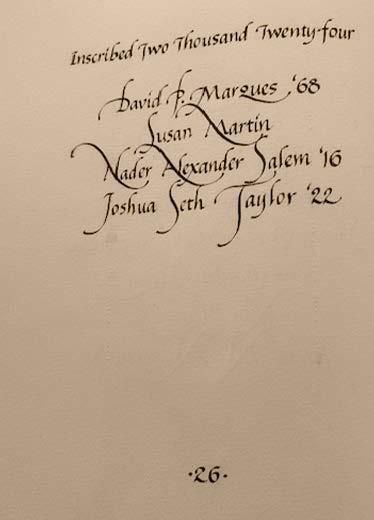 Inscribed Two Thousand Twenty-four
David P. Marques '68
Susan Martin
Nader Alexander Salem '16
Joshua Seth Taylor '22
·26·